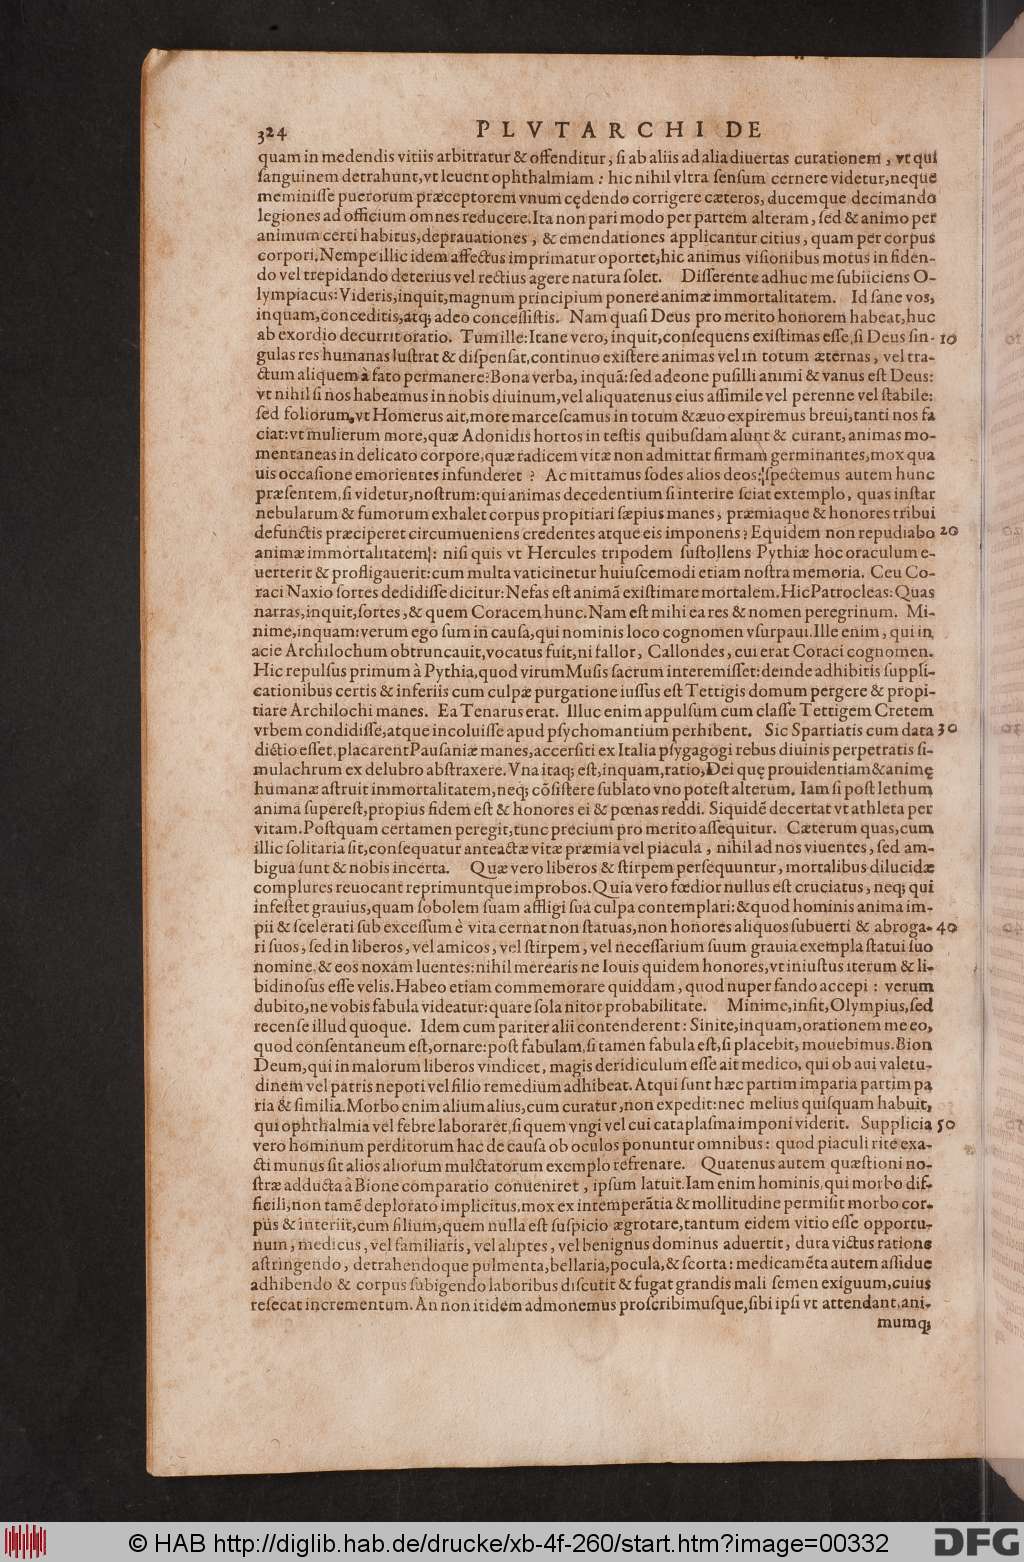 324
PLVTARCHI DE
quam in medendis vitiis arbitratur & offenditur, si ab aliis ad alia diuertas curationem, vt qui
sanguinem detrahunt, vt leuent ophthalmiam: hic nihil vltra sensum cernere videtur, neque
meminisse puerorum præceptorem vnum cędendo corrigere cæteros, ducemque decimando
legiones ad officium omnes reducere. Ita non pari modo per partem alteram, sed & animo per
animum certi habitus, deprauationes, & emendationes applicantur citius, quam per corpus
corpori. Nempe illic idem affectus imprimatur oportet, hic animus visionibus motus in fiden-
do vel trepidando deterius vel rectius agere natura solet. Disserente adhuc me subiiciens O-
lympiacus: Videris, inquit, magnum principium ponere animæ immortalitatem. Id sane vos,
inquam, conceditis, atq; adeo concessistis. Nam quasi Deus pro merito honorem habeat, huc
ab exordio decurrit oratio. Tum ille: Itane vero, inquit, consequens existimas esse, si Deus sin- 10
gulas res humanas lustrat & dispensat, continuo existere animas vel in totum æternas, vel tra-
ctum aliquem à fato permanere? Bona verba, inquã: sed adeone pusilli animi & vanus est Deus:
vt nihil si nos habeamus in nobis diuinum, vel aliquatenus eius assimile vel perenne vel stabile:
sed foliorum, vt Homerus ait, more marcescamus in totum & æuo expiremus breui, tanti nos fa
ciat: vt mulierum more, quæ Adonidis hortos in testis quibusdam alunt & curant, animas mo-
mentaneas in delicato corpore, quæ radicem vitæ non admittat firmam germinantes, mox qua
uis occasione emorientes infunderet? Ac mittamus sodes alios deos: spectemus autem hunc
præsentem, si videtur, nostrum: qui animas decedentium si interire sciat extemplo, quas instar
nebularum & fumorum exhalet corpus propitiari sæpius manes, præmiaque & honores tribui
defunctis præciperet circumueniens credentes atque eis imponens? Equidem non repudiabo 20
animæ immortalitatem: nisi quis vt Hercules tripodem sustollens Pythiæ hoc oraculum e-
uerterit & profligauerit: cum multa vaticinetur huiuscemodi etiam nostra memoria. Ceu Co-
raci Naxio sortes dedidisse dicitur: Nefas est animã existimare mortalem. Hic Patrocleas: Quas
narras, inquit, sortes, & quem Coracem hunc. Nam est mihi ea res & nomen peregrinum. Mi-
nime, inquam: verum ego sum in causa, qui nominis loco cognomen vsurpaui. Ille enim, qui in
acie Archilochum obtruncauit, vocatus fuit, ni fallor, Callondes, cui erat Coraci cognomen.
Hic repulsus primum à Pythia, quod virum Musis sacrum interemisset: deinde adhibitis suppli-
cationibus certis & inferiis cum culpæ purgatione iussus est Tettigis domum pergere & propi-
tiare Archilochi manes. Ea Tenarus erat. Illuc enim appulsum cum classe Tettigem Cretem
vrbem condidisse, atque incoluisse apud psychomantium perhibent. Sic Spartiatis cum data 30
dictio esset, placarent Pausaniæ manes, accersiti ex Italia psygagogi rebus diuinis perpetratis si-
mulachrum ex delubro abstraxere. Vna itaq; est, inquam, ratio, Dei quę prouidentiam & animę
humanæ astruit immortalitatem, neq; cõsistere sublato vno potest alterum. Iam si post lethum
anima superest, propius fidem est & honores ei & pœnas reddi. Siquidẽ decertat vt athleta per
vitam. Postquam certamen peregit, tunc precium pro merito assequitur. Cæterum quas, cum
illic solitaria sit, consequatur anteactæ vitæ præmia vel piacula, nihil ad nos viuentes, sed am-
bigua sunt & nobis incerta. Quæ vero liberos & stirpem persequuntur, mortalibus dilucidæ
complures reuocant reprimuntque improbos. Quia vero fœdior nullus est cruciatus, neq; qui
infestet grauius, quam sobolem suam affligi sua culpa contemplari: & quod hominis anima im-
pii & scelerati sub excessum è vita cernat non statuas, non honores aliquos subuerti & abroga- 40
ri suos, sed in liberos, vel amicos, vel stirpem, vel necessarium suum grauia exempla statui suo
nomine, & eos noxam luentes: nihil merearis ne Iouis quidem honores, vt iniustus iterum & li-
bidinosus esse velis. Habeo etiam commemorare quiddam, quod nuper fando accepi: verum
dubito, ne vobis fabula videatur: quare sola nitor probabilitate. Minime, insit, Olympius, sed
recense illud quoque. Idem cum pariter alii contenderent: Sinite, inquam, orationem me eo,
quod consentaneum est, ornare: post fabulam, si tamen fabula est, si placebit, mouebimus. Bion
Deum, qui in malorum liberos vindicet, magis deridiculum esse ait medico, qui ob aui valetu-
dinem vel patris nepoti vel filio remedium adhibeat. Atqui sunt hæc partim imparia partim pa
ria & similia. Morbo enim alium alius, cum curatur, non expedit: nec melius quisquam habuit,
qui ophthalmia vel febre laboraret, si quem vngi vel cui cataplasma imponi viderit. Supplicia 50
vero hominum perditorum hac de causa ob oculos ponuntur omnibus: quod piaculi rite exa-
cti munus sit alios aliorum mulctatorum exemplo refrenare. Quatenus autem quæstioni no-
stræ adducta à Bione comparatio conueniret, ipsum latuit. Iam enim hominis, qui morbo dif-
ficili, non tamẽ deplorato implicitus, mox ex intemperãtia & mollitudine permisit morbo cor-
pus & interiit, cum filium, quem nulla est suspicio ægrotare, tantum eidem vitio esse opportu-
num, medicus, vel familiaris, vel aliptes, vel benignus dominus aduertit, dura victus ratione
astringendo, detrahendoque pulmenta, bellaria, pocula, & scorta: medicamẽta autem assidue
adhibendo & corpus subigendo laboribus discutit & fugat grandis mali semen exiguum, cuius
resecat incrementum. An non itidem admonemus proscribimusque, sibi ipsi vt attendant, ani-
mumq;
© HAB http://diglib.hab.de/drucke/xb-4f-260/start.htm?image=00332
DFG